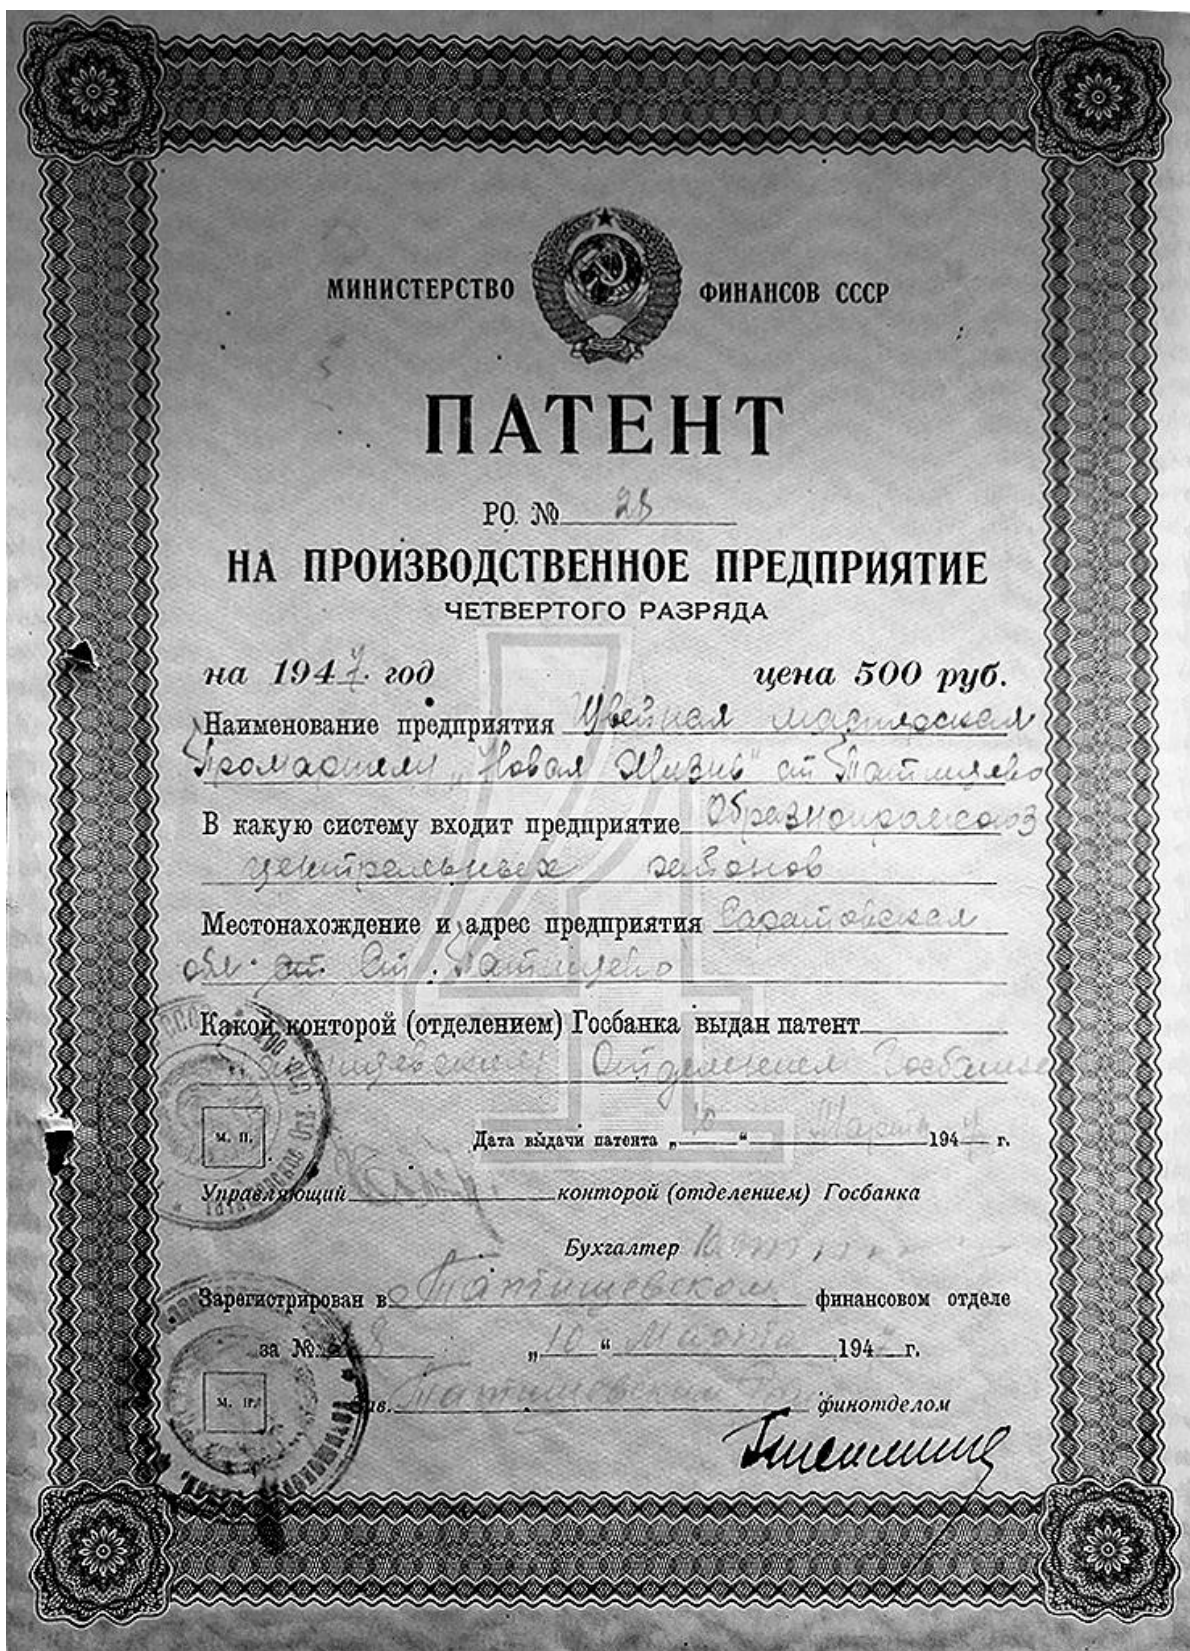 МИНИСТЕРСТВО ФИНАНСОВ СССР
ПАТЕНТ
РО. №
НА ПРОИЗВОДСТВЕННОЕ ПРЕДПРИЯТИЕ
ЧЕТВЕРТОГО РАЗРЯДА
на 1947 год цена 500 руб.
Наименование предприятия Швейная мастерская
Промартели „Новая Жизнь" ст Татищево
В какую систему входит предприятие
центральных районов
Местонахождение и адрес предприятия Саратовская
обл. ст. Татищево
Какой конторой (отделением) Госбанка выдан патент
Отделением Госбанка
Дата выдачи патента „10" Марта 1947 г.
М. П.
Управляющий конторой (отделением) Госбанка
Бухгалтер
Зарегистрирован в Татищевском финансовом отделе
за № „10" Марта 194 г.
М. П.
Зав. Татищевским финотделом